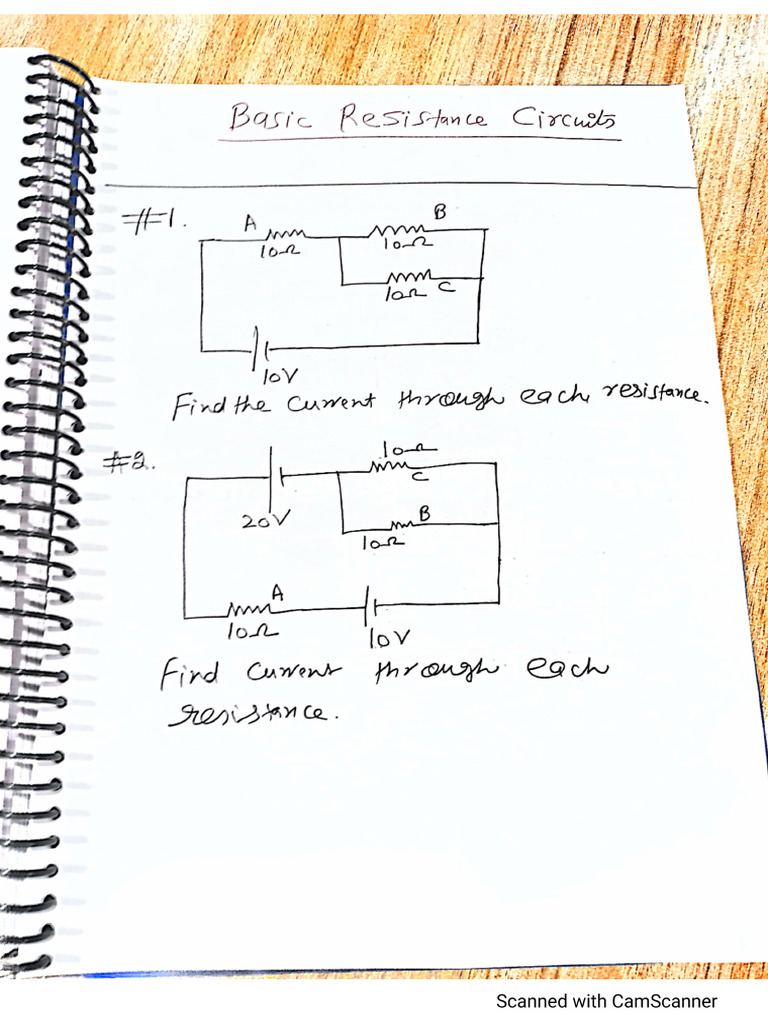 Basic Resistance Circuits
#1.
A
B
10Ω
10Ω
10Ω C
10V
Find the current through each resistance.
#2.
10Ω
C
20V
B
10Ω
A
10Ω
10V
Find current through each
resistance.
Scanned with CamScanner